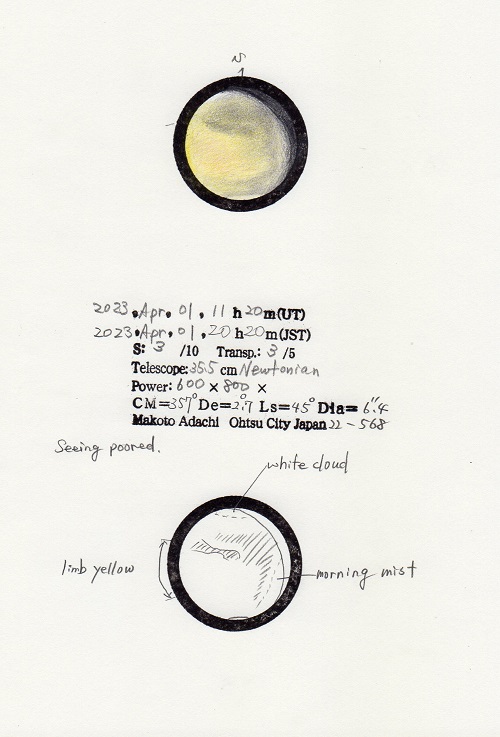 N
2023.Apr.01,11h20m(UT)
2023.Apr.01,20h20m(JST)
S: 3 /10 Transp.: 3 /5
Telescope:35.5 cm Newtonian
Power: 600 × 800 ×
CM=357° De=2°.7 Ls=45° Dia= 6".4
Makoto Adachi Ohtsu City Japan 22-568
Seeing poored.
white cloud
limb yellow
morning mist